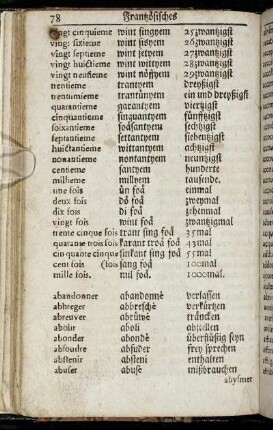 78 Frantzösisches
vingt cinquieme wint singyem 25zwantzigst
vingt. sixieme wint seyem 26zwantzigst
vingt septieme wint setyem 27zwantzigst
vingt huictieme wint wittyem 28zwantzigst
vingt neufieme wint nöffyem 29zwantzigst
trentieme trantyem dreyßigst
trentunieme trantünyem ein und dreyßigst
quarantieme garantyem viertzigst
cinquantieme sinquantyem fünfftzigst
soixantieme soäsantyem sechtzigst
septantieme sertantyem siebentzigst
huictantieme wittantyem achtzigst
nonantieme nontantyem neuntzigst
centieme santyem hunderte
millieme millyem tausende.
une fois ün foä einmal
deux fois dö foä zweymal
dix fois di foä zehenmal
vingt fois wint foä zwantzigmal
trente cinque fois trant sing foä 35mal
quarante trois fois karant troä foä 43mal
cinquante cinque sinkant sing foä 55mal
cent fois (fois sang foä 100mal
mille fois. mil foä. 1000mal.
abandonner abandonnè verlassen
abbreger abbreschè verkürtzen
abreuver abrüwè träncken
abolir aboli abstellen
abonder abondè überflüßig seyn
absoudre absuder frey sprechen
abstenir absteni enthalten
abuser abusè mißbrauchen
abysmer